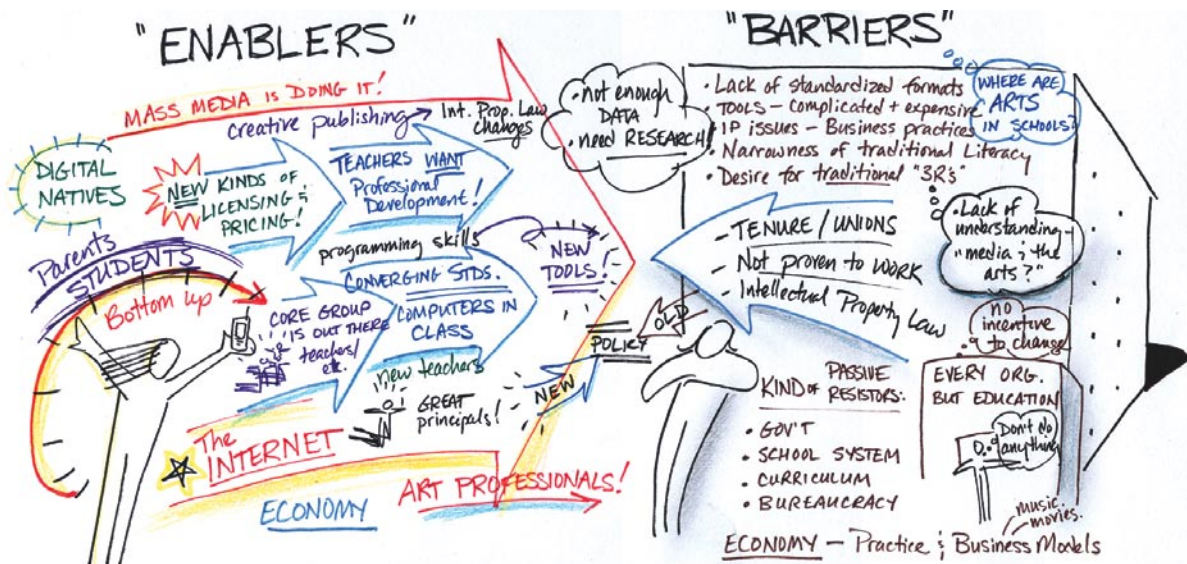 "ENABLERS"
MASS MEDIA IS DOING IT!
creative publishing
Int. Prop. Law
changes
DIGITAL
NATIVES
NEW KINDS OF
LICENSING &
PRICING!
TEACHERS WANT
Professional
Development!
Parents
STUDENTS
Bottom up
programming skills
NEW
TOOLS!
CONVERGING STDS.
COMPUTERS IN
CLASS
CORE GROUP
IS OUT THERE
teachers/
etc.
new teachers
GREAT
principals!
NEW
POLICY
OLD
The
INTERNET
ART PROFESSIONALS!
ECONOMY
"BARRIERS"
• not enough
DATA
• need RESEARCH!
• Lack of standardized formats
• TOOLS – complicated + expensive
• IP issues – Business practices
• Narrowness of traditional Literacy
• Desire for traditional "3R's"
WHERE ARE
ARTS
IN SCHOOLS?
– TENURE / UNIONS
– Not proven to WORK
– Intellectual Property Law
• Lack of
understanding –
"media & the
arts?"
no
incentive
to change
KIND OF PASSIVE
RESISTORS:
• GOV'T
• SCHOOL SYSTEM
• CURRICULUM
• BUREAUCRACY
EVERY ORG.
BUT EDUCATION
Don't do
anything
music
movies.
ECONOMY – Practice & Business Models